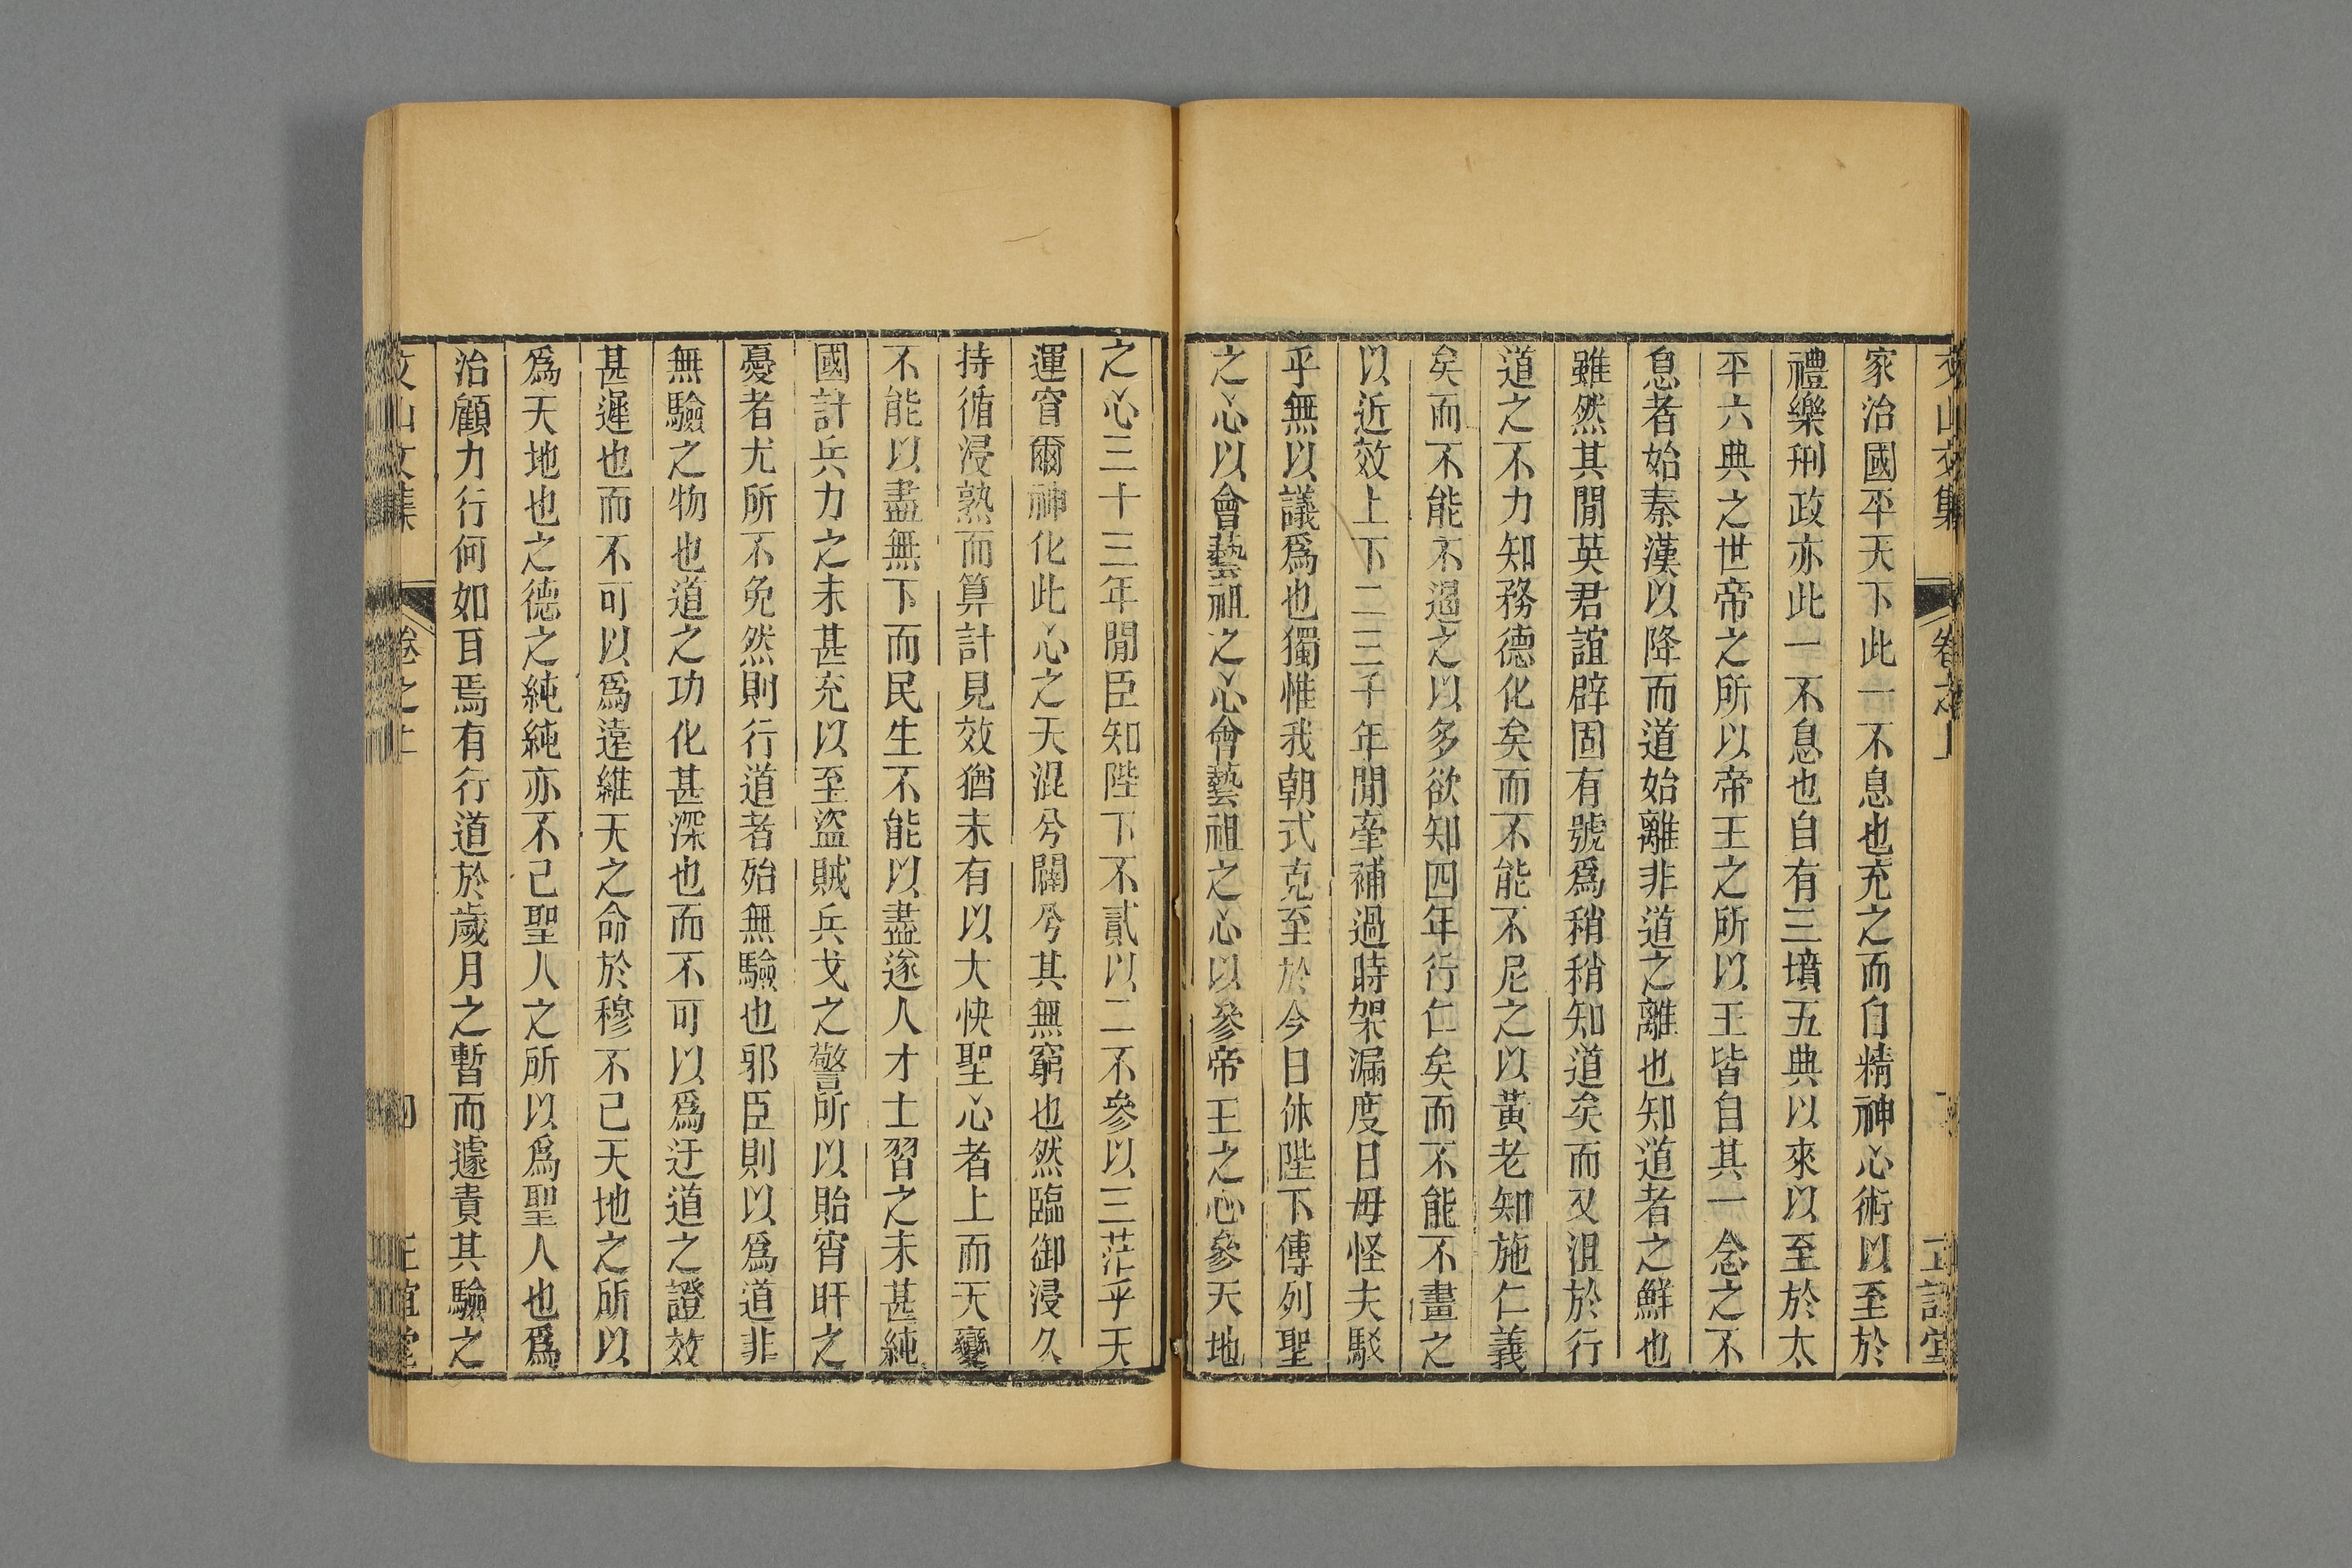 文山文集 卷之上 正誼堂
家治國平天下此一不息也充之而自精神心術以至於
禮樂刑政亦此一不息也自有三墳五典以來以至於太
平六典之世帝之所以帝王之所以王皆自其一念之不
息者始秦漢以降而道始離非道之離也知道者之鮮也
雖然其閒英君誼辟固有號爲稍稍知道矣而又沮於行
道之不力知務德化矣而不能不尼之以黃老知施仁義
矣而不能不遏之以多欲知四年行仁矣而不能不畫之
以近效上下二三千年閒牽補過時架漏度日毋怪夫駁
乎無以議爲也獨惟我朝式克至於今日休陛下傳列聖
之心以會藝祖之心會藝祖之心以參帝王之心參天地
之心三十三年閒臣知陛下不貳以二不參以三茫乎天
運窅爾神化此心之天混兮闢兮其無窮也然臨御浸久
持循浸熟而算計見效猶未有以大快聖心者上而天變
不能以盡無下而民生不能以盡遂人才士習之未甚純
國計兵力之未甚充以至盜賊兵戈之警所以貽宵旰之
憂者尤所不免然則行道者殆無驗也邪臣則以爲道非
無驗之物也道之功化甚深也而不可以爲迂道之證效
甚遲也而不可以爲遠維天之命於穆不已天地之所以
爲天地也之德之純純亦不已聖人之所以爲聖人也爲
治顧力行何如耳焉有行道於歲月之暫而遽責其驗之
文山文集 卷之上 四 正誼堂